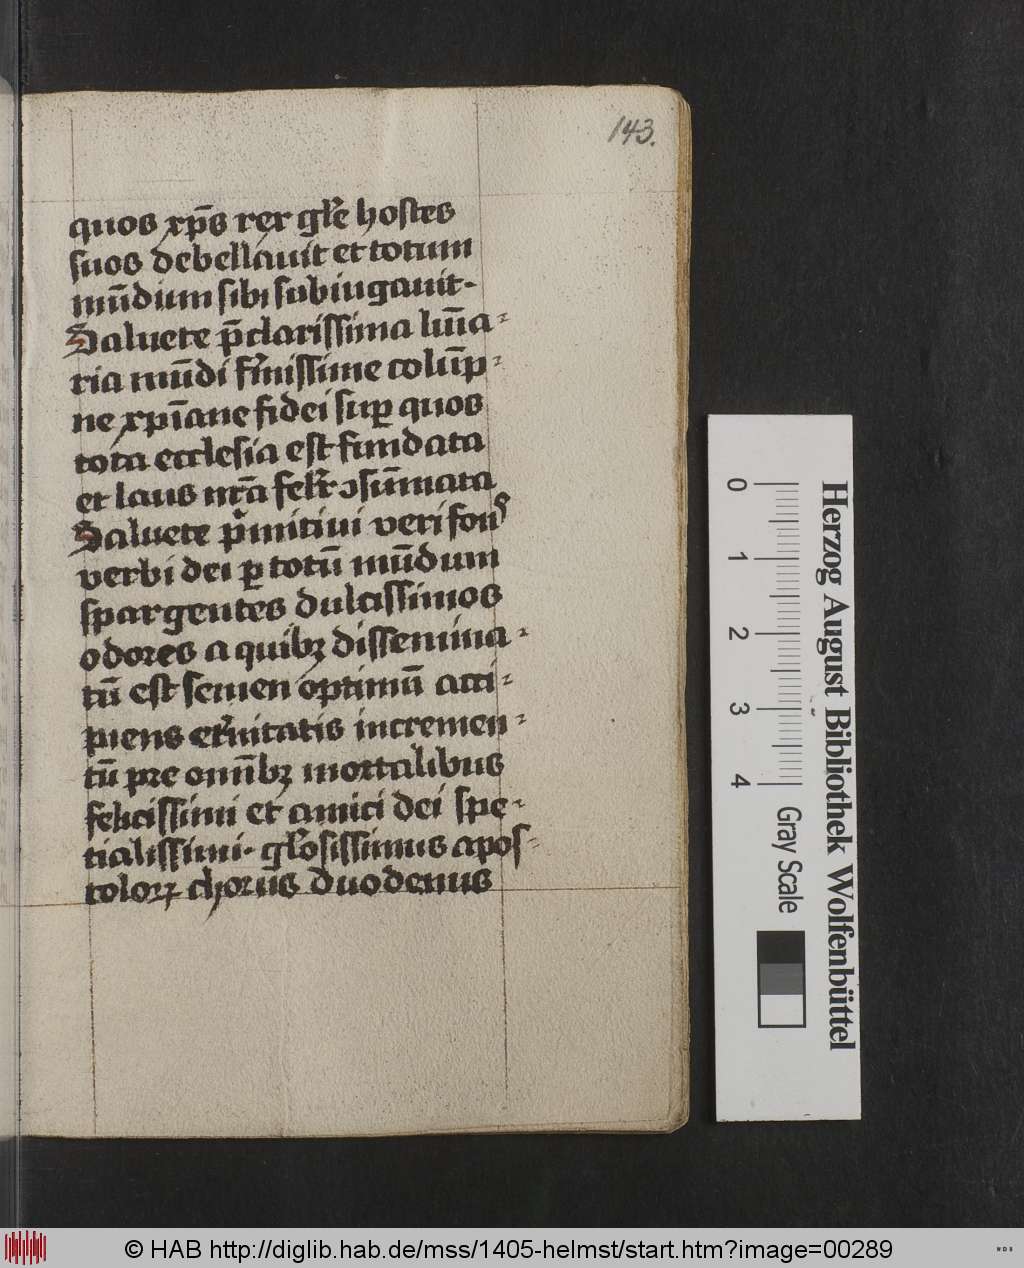 143.
quos xp̄s rex gl̄e hostes
suos debellauit et totum
mūdium sibi subiugauit-
Saluete p̄clarissima lūīa-
ria mūdi f̄missime colūp-
ne xp̄iane fidei sup̱ quos
tota ecclesia est fundata
et laus nr̄a felr̄ ↄsūmata
Saluete p̄mitiui veri fonꝰ
verbi dei ꝑ totū mūdum
spargentes dulcissimos
odores a quibꝫ dissemina-
tū est semen optimū acci-
piens et̄nitatis incremen-
tū pre omībꝫ mortalibus
felicissimi et amici dei spe-
tialissimi· gl̄osissimus apos-
tolorꝝ chorus duodenus
0 1 2 3 4
Gray Scale
Herzog August Bibliothek Wolfenbüttel
© HAB http://diglib.hab.de/mss/1405-helmst/start.htm?image=00289
WDB